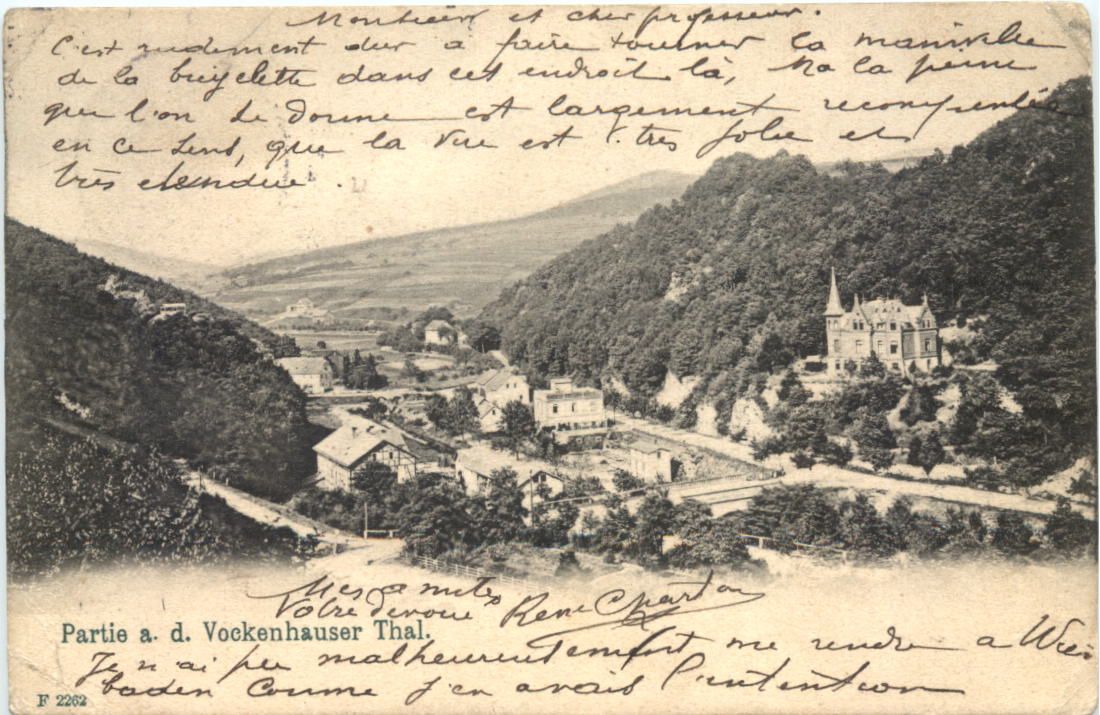 Monsieur et cher professeur.
C'est rudement dur a faire tourner la manivelle
de la bicyclette dans cet endroit là, Ma la peine
que l'on se donne est largement recompensée
en ce sens, que la vue est très jolie et
très etendue.
Mes amités
Votre devoué René Charton
Partie a. d. Vockenhauser Thal.
Je n'ai pu malheureusement me rendre a Wies
baden comme j'en avais l'intention
F 2262